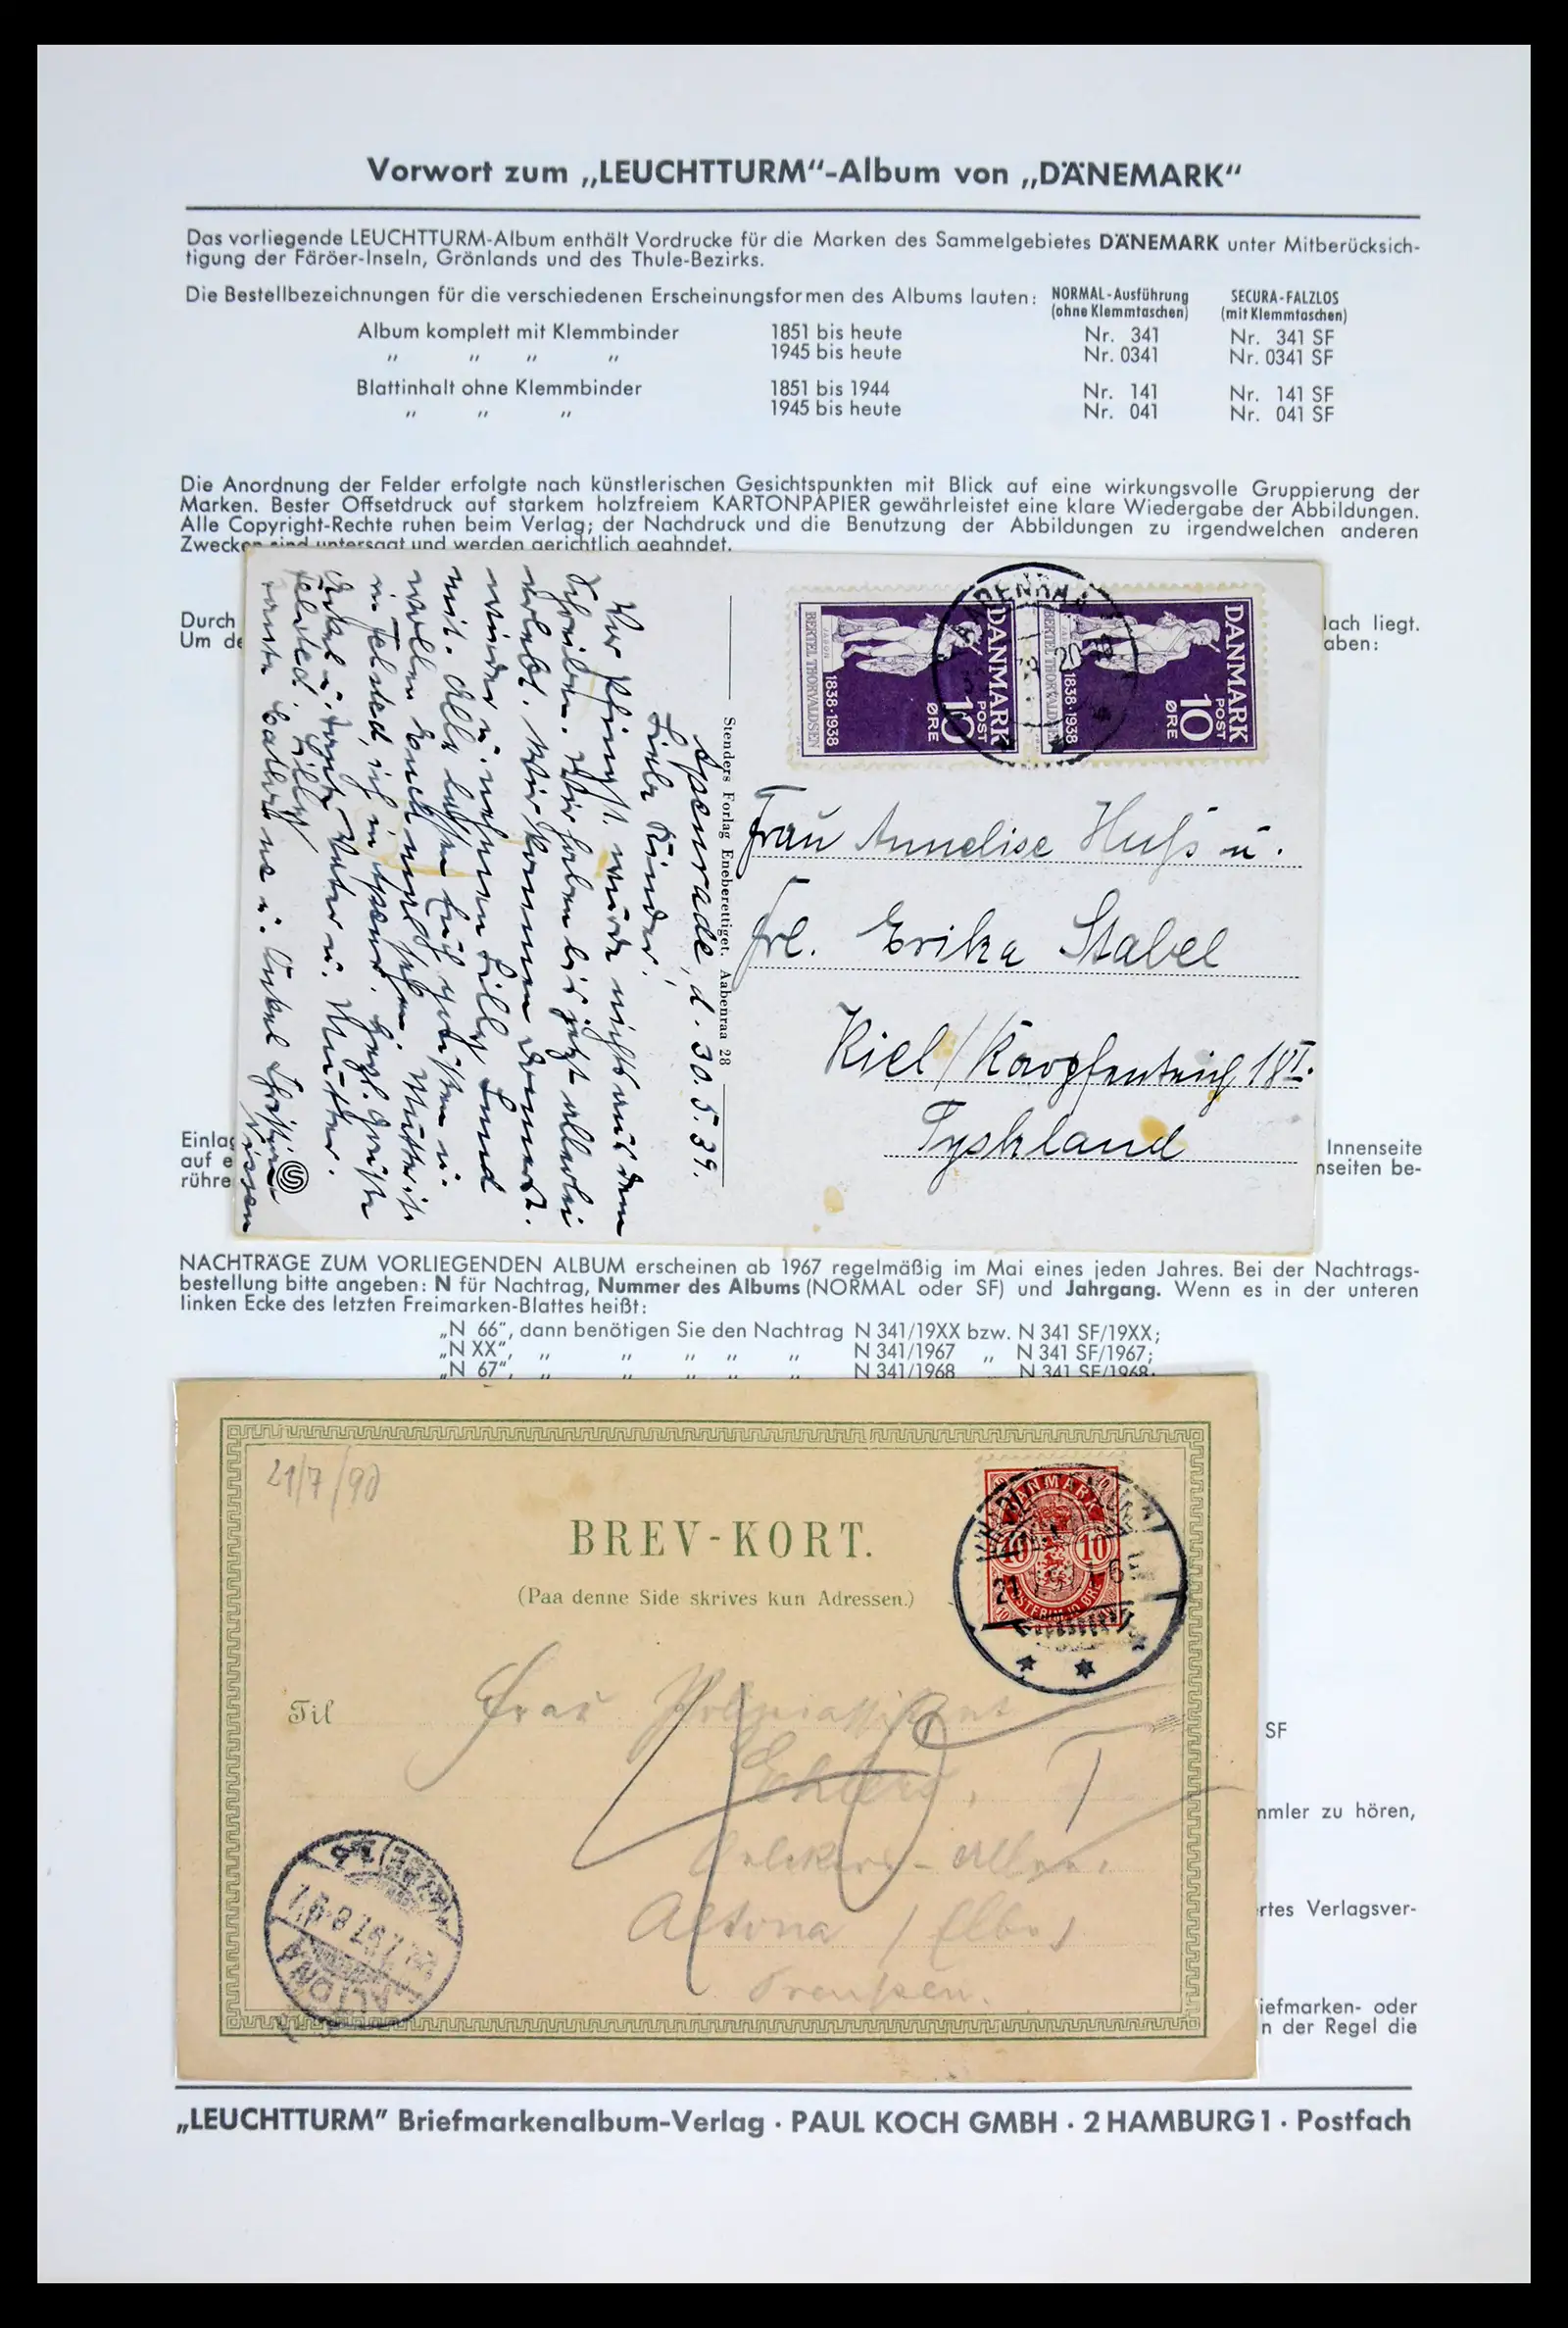 Vorwort zum „LEUCHTTURM“-Album von „DÄNEMARK“
Das vorliegende LEUCHTTURM-Album enthält Vordrucke für die Marken des Sammelgebietes DÄNEMARK unter Mitberücksich-
tigung der Färöer-Inseln, Grönlands und des Thule-Bezirks.
Die Bestellbezeichnungen für die verschiedenen Erscheinungsformen des Albums lauten: NORMAL-Ausführung SECURA-FALZLOS
(ohne Klemmtaschen) (mit Klemmtaschen)
Album komplett mit Klemmbinder 1851 bis heute Nr. 341 Nr. 341 SF
„ „ „ „ 1945 bis heute Nr. 0341 Nr. 0341 SF
Blattinhalt ohne Klemmbinder 1851 bis 1944 Nr. 141 Nr. 141 SF
„ „ „ 1945 bis heute Nr. 041 Nr. 041 SF
Die Anordnung der Felder erfolgte nach künstlerischen Gesichtspunkten mit Blick auf eine wirkungsvolle Gruppierung der
Marken. Bester Offsetdruck auf starkem holzfreiem KARTONPAPIER gewährleistet eine klare Wiedergabe der Abbildungen.
Alle Copyright-Rechte ruhen beim Verlag; der Nachdruck und die Benutzung der Abbildungen zu irgendwelchen anderen
Zwecken sind untersagt und werden gerichtlich geahndet.
Durch
lach liegt.
Um de
aben:
DANMARK
POST
10
ØRE
BERTEL THORVALDSEN
1838-1938
JASON
DANMARK
POST
10
ØRE
BERTEL THORVALDSEN
1838-1938
AABENRAA
Stenders Forlag Eneberettiget. Aabenraa 28
Apenrade, d. 30.5.39.
Liebe Kinder,
Vor Pfingst. wurde nichts aus dem
Schreiben. Wir haben bis jetzt allerlei
erlebt. Wir kommen Donnerst.
wieder u. nehmen Lilly
mit.
wollen Euch
in Felsted, ich in Apenr. Herzl. Grüße
Vater u. Mutter.
Felsted. Lilly
Tante Cathrine u. Onkel
Nissen
Frau Annelise Huß u.
Frl. Erika Stabel
Kiel / Karpfenteich 18 I.
Tyskland
Einlag
Innenseite
auf e
nseiten be-
rühre
NACHTRÄGE ZUM VORLIEGENDEN ALBUM erscheinen ab 1967 regelmäßig im Mai eines jeden Jahres. Bei der Nachtrags-
bestellung bitte angeben: N für Nachtrag, Nummer des Albums (NORMAL oder SF) und Jahrgang. Wenn es in der unteren
linken Ecke des letzten Freimarken-Blattes heißt:
„N 66“, dann benötigen Sie den Nachtrag N 341/19XX bzw. N 341 SF/19XX;
„N XX“, „ „ „ „ „ N 341/1967 „ N 341 SF/1967;
„N 67“, „ „ „ „ „ N 341/1968 N 341 SF/1968.
21/7/98
BREV-KORT.
(Paa denne Side skrives kun Adressen.)
DANMARK
10 10
POSTFRIM. 10 ØRE
21
Til
Frau
Altona / Elbe
Preußen.
T
ALTONA
SF
mmler zu hören,
ertes Verlagsver-
iefmarken- oder
n der Regel die
„LEUCHTTURM” Briefmarkenalbum-Verlag · PAUL KOCH GMBH · 2 HAMBURG 1 · Postfach